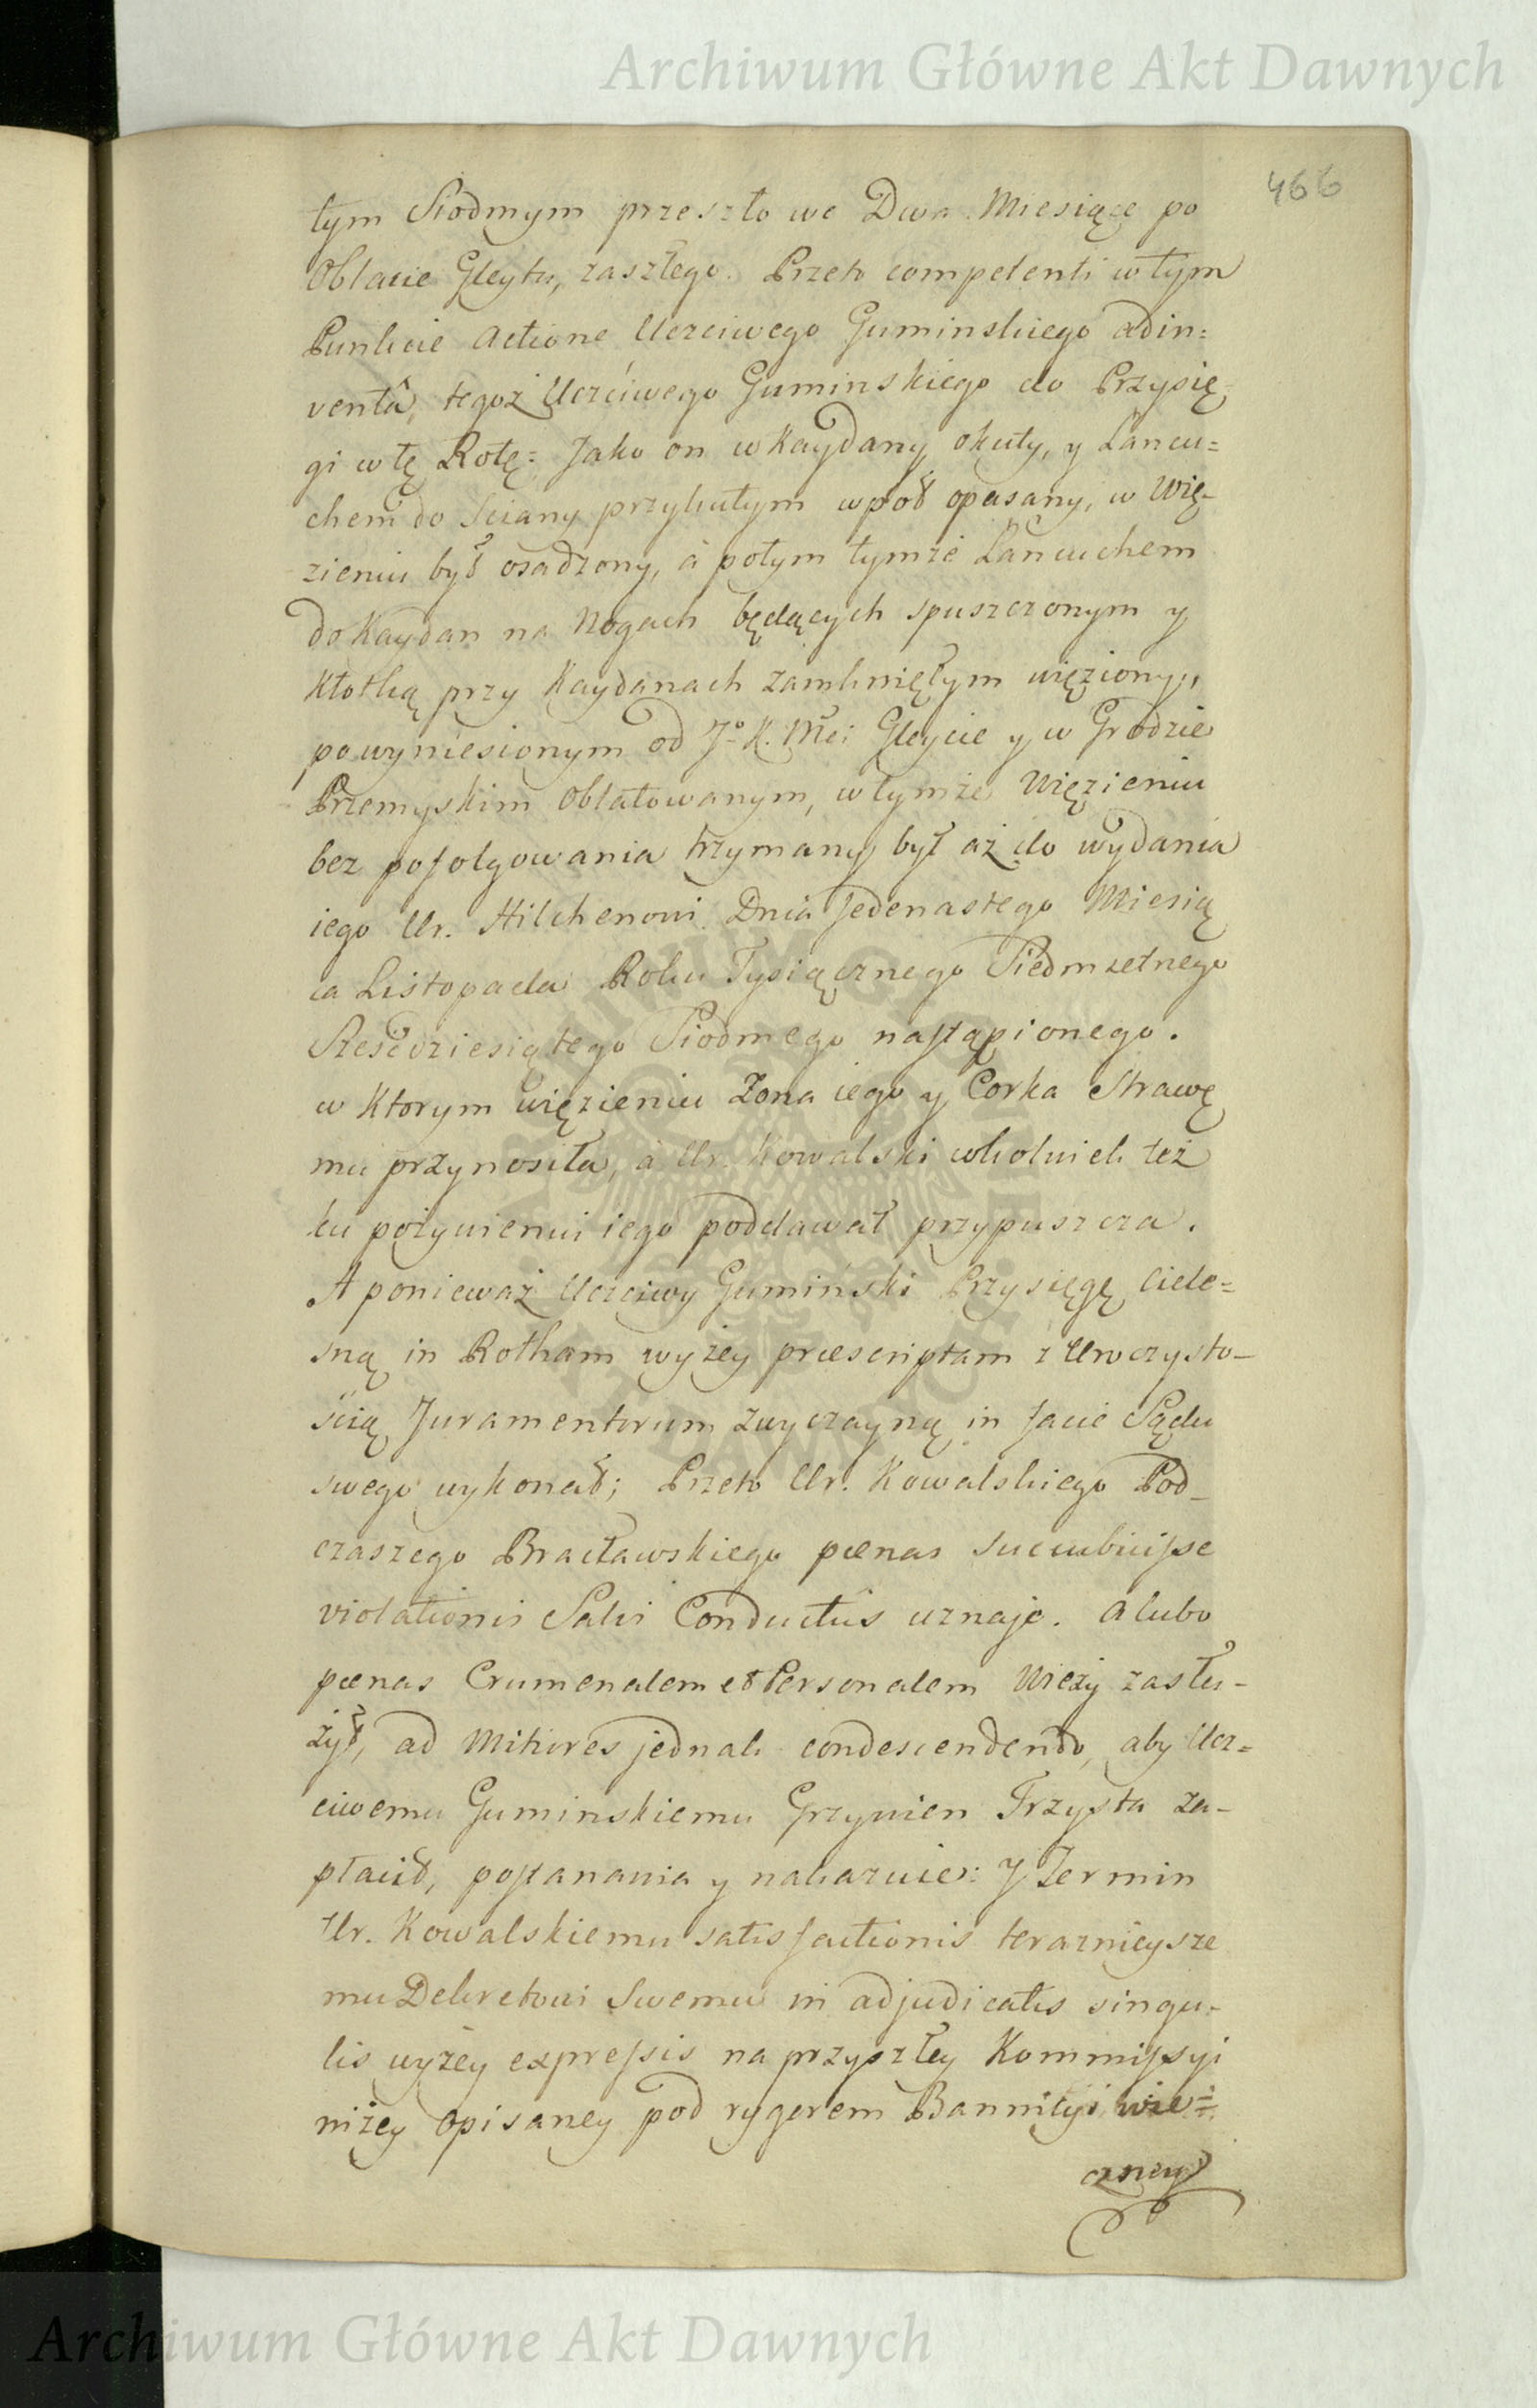 Archiwum Główne Akt Dawnych
466
tym Siodmym przeszło we Dwa Miesiące po
Oblacie Gleytu, zaszłego. Przeto competenti w tym
Punkcie Actione Uczciwego Guminskiego adin=
ventâ, tegoż Uczciwego Guminskiego do Przysię=
gi w tę Rotę: Jako on w Kaydany okuty, y Lancu=
chem do Sciany przykutym wpoł opasany, w Wię-
zieniu był osadzony, à potym tymże Lancuchem
do Kaydan na Nogach będących spuszczonym y
Kłotką przy Kaydanach zamkniętym więziony,
po wyniesionym od Jo K. Mci Gleycie y w Grodzie
Przemyskim oblatowanym, w tymże Więzieniu
bez pofolgowania trzymany był aż do wydania
iego Ur. Hilchenowi Dnia Jedenastego Miesią
ca Listopada Roku Tysiącznego Siedmsetnego
Sześćdziesiątego Siodmego nastąpionego.
w Ktorym więzieniu Zona iego y Corka Strawę
mu przynosiła, à Ur. Kowalski wkolwiek też
ku pożywieniu iego poddawał przypuszcza.
A ponieważ Uczciwy Gumiński Przysięgę Ciele=
sną in Rotham wyżey præscriptam z Uroczysto-
ścią Juramentorum zwyczayną in facie Sądu
swego wykonał; Przeto Ur. Kowalskiego Pod-
czaszego Bracławskiego pœnas succubuisse
violationis Salvi Conductûs uznaje. A lubo
pœnas Crumenalem et Personalem Wieży zasłu-
żył, ad Mitiores jednak condescendendo, aby Ucz=
ciwemu Guminskiemu Grzywien Trzysta za-
płacił, postanawia y nakazuie: Y Termin
Ur. Kowalskiemu satisfactionis teraznieysze
mu Dekretowi Swemu in adjudicatis singu-
lis wyżey expressis na przyszłey Kommissyi
niżey opisaney pod rygorem Bannicyi wie=
czney
Archiwum Główne Akt Dawnych